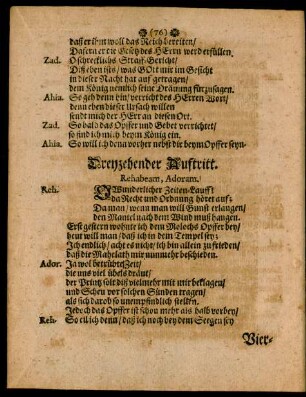 (76)
dass er ihm woll das Reich bereiten/
Dafern er die Gesetz des HErrn werd erfüllen.
Zad. O schrecklichs Straff-Gericht/
Diß eben ists/ was GOtt mir im Gesicht
in dieser Nacht hat auf getragen/
dem König nemlich seine Dräuung fürzusagen.
Ahia. So geh denn hin/ verricht des HErren Wort/
denn eben dieser Ursach willen
sendt mich der HErr an diesen Ort.
Zad. So bald das Opffer und Gebet verrichtet/
so find ich mich beym König ein.
Ahia. So will ich denn vorher nebst dir beym Opffer seyn.
Dreyzehender Aufftritt.
Rehabeam, Adoram.
Reh. O Wunderlicher Zeiten-Laufft
da Recht und Ordnung höret auf;
Da man/ wenn man will Gunst erlangen/
den Mantel nach dem Wind muß hangen.
Erst gestern wohnte ich dem Molochs Opffer bey/
heut will man/ daß ich in dem Tempel sey;
Ich endlich/ acht es nicht/ ich bin allein zu frieden/
daß die Mahelath mir nunmehr beschieden.
Ador. Ja wol betrübte Zeit/
die uns viel übels dräut/
der Printz solt diß vielmehr mit mir beklagen/
und Scheu vor solchen Sünden tragen/
als sich darob so unempfindlich stellen.
Jedoch das Opffer ist schon mehr als halb vorbey/
Reh. So eil ich denn/ daß ich noch bey dem Seegen sey
Vier-